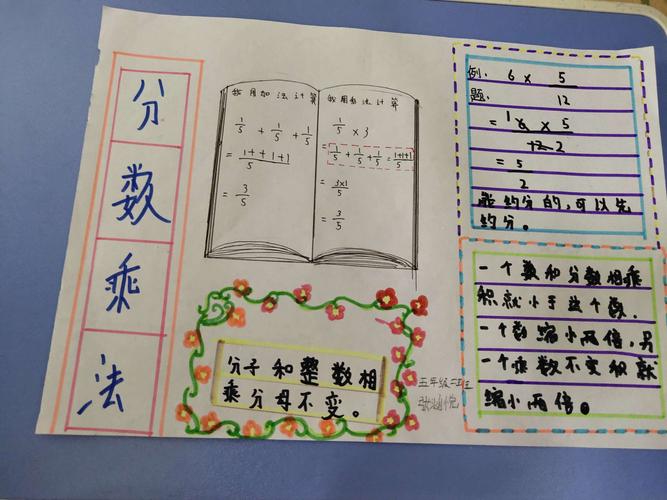 分
数
乘
法
我用加法计算
1/5 + 1/5 + 1/5
= 1++1+1/5
= 3/5
我用乘法计算
1/5 × 3
= 1/5 + 1/5 + 1/5 = 1+1+1/5
= 3×1/5
= 3/5
例: 6 × 5
题: 12
= 1 6 × 5
12 2
= 5
2
能约分的,可以先
约分。
分子和整数相
乘分母不变。
五年级二班
一个数和分数相乘
积就小于这个数.
一个数缩小两倍,另
一个乘数不变积就
缩小两倍。